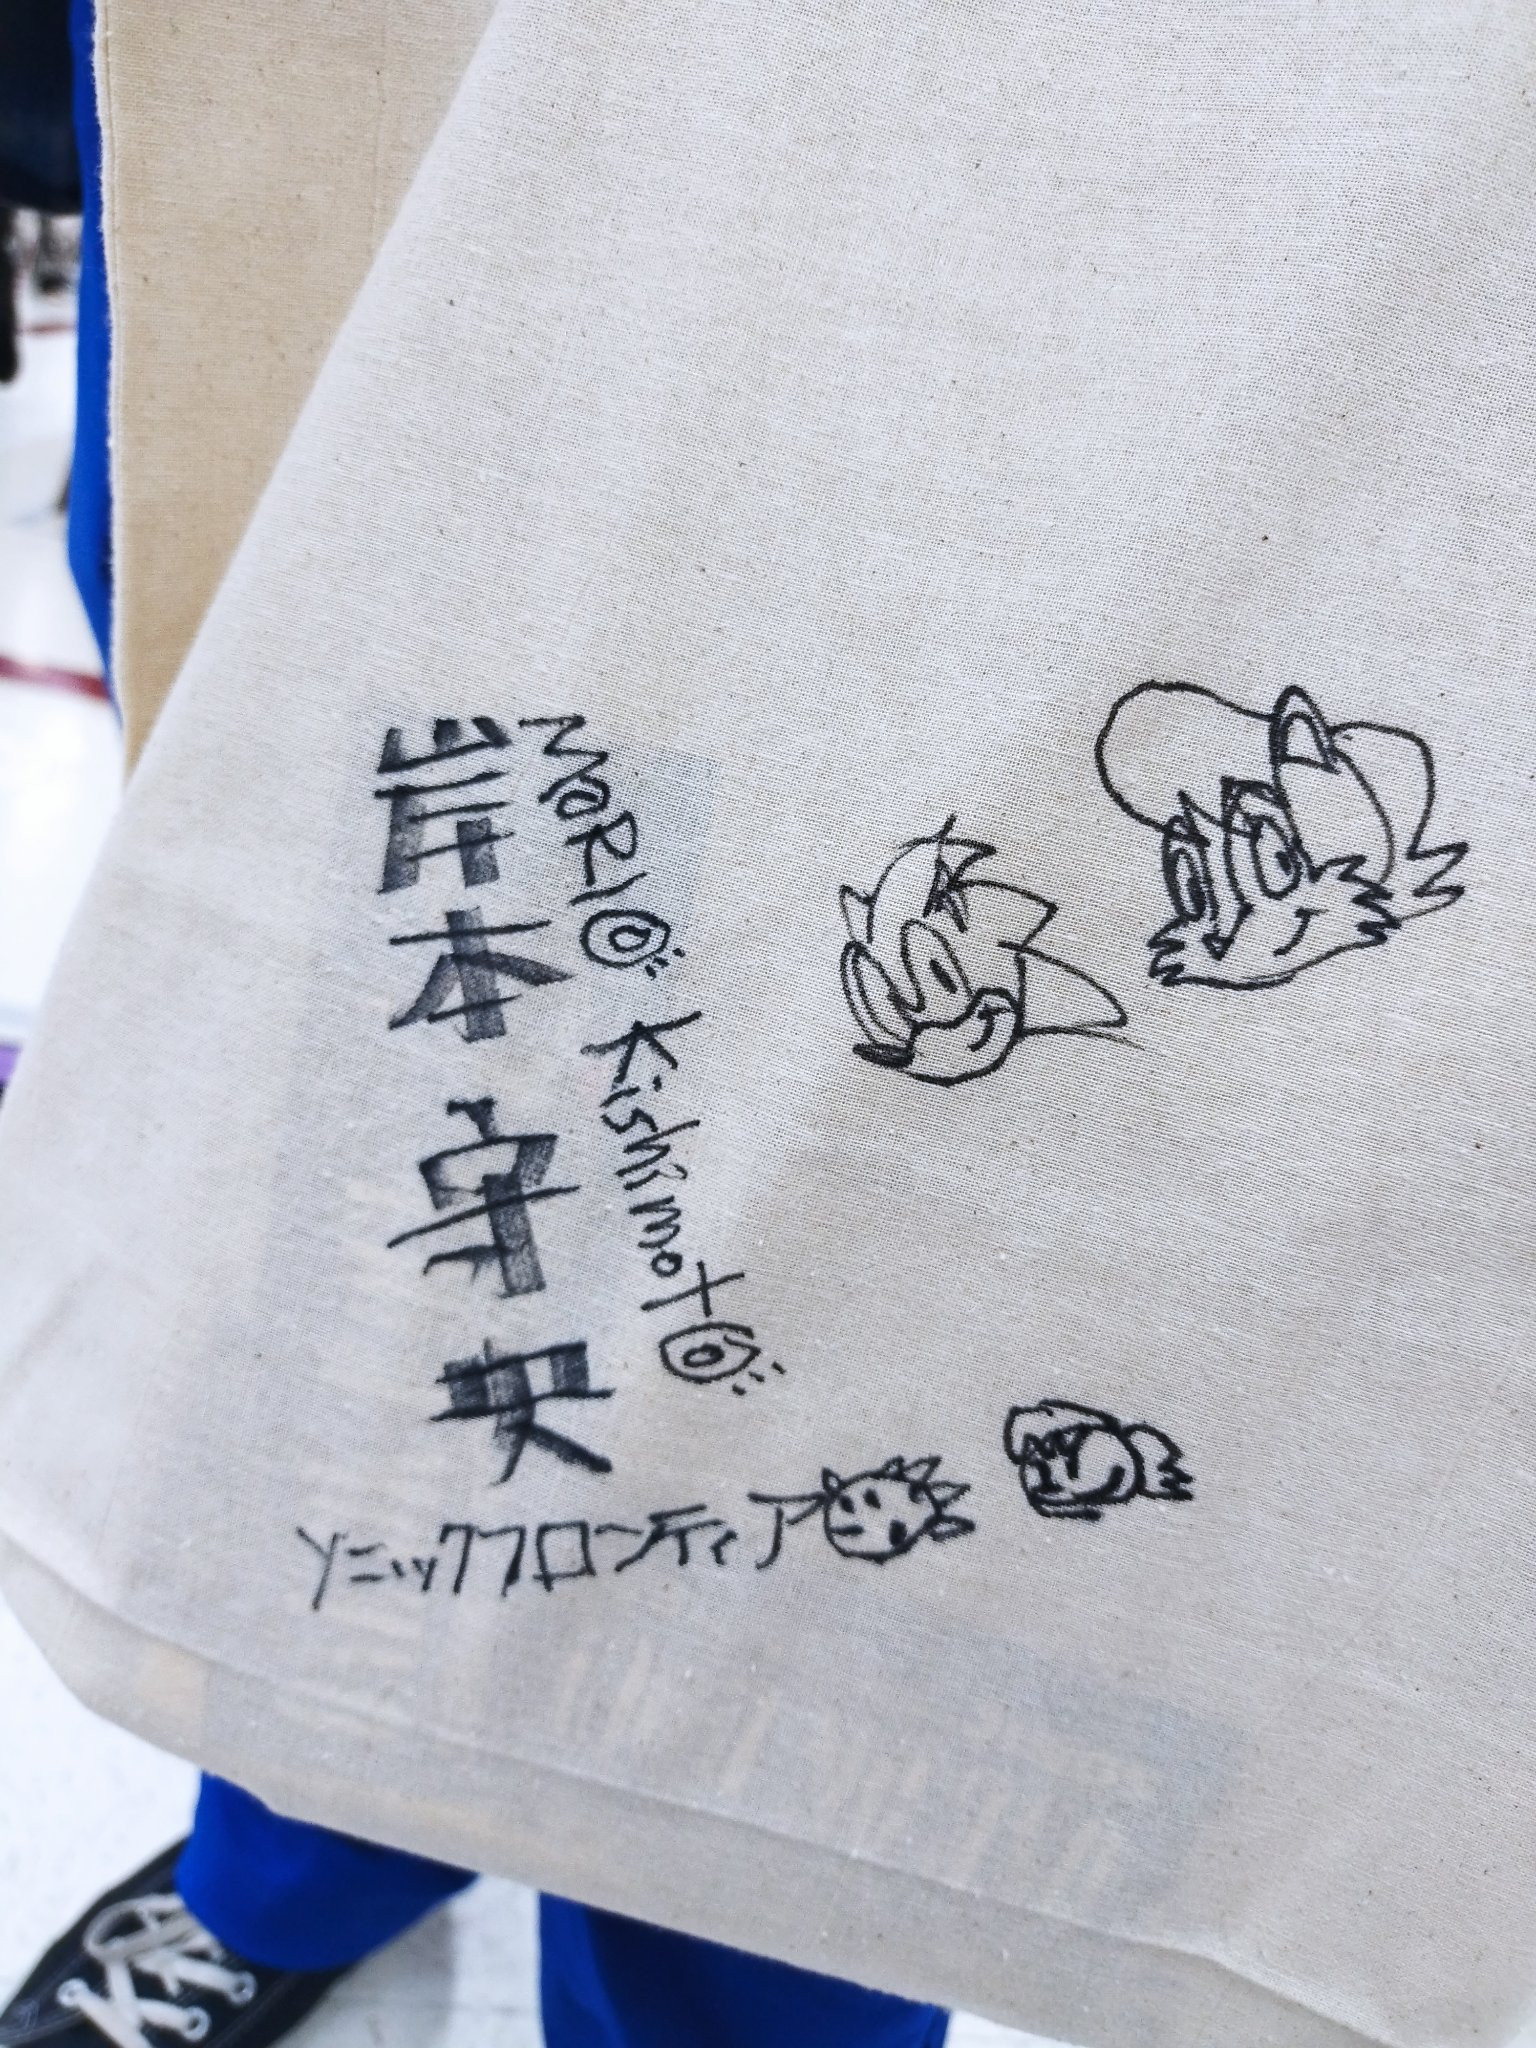 岸本守央
MORIO Kishimoto
ソニックフロンティア